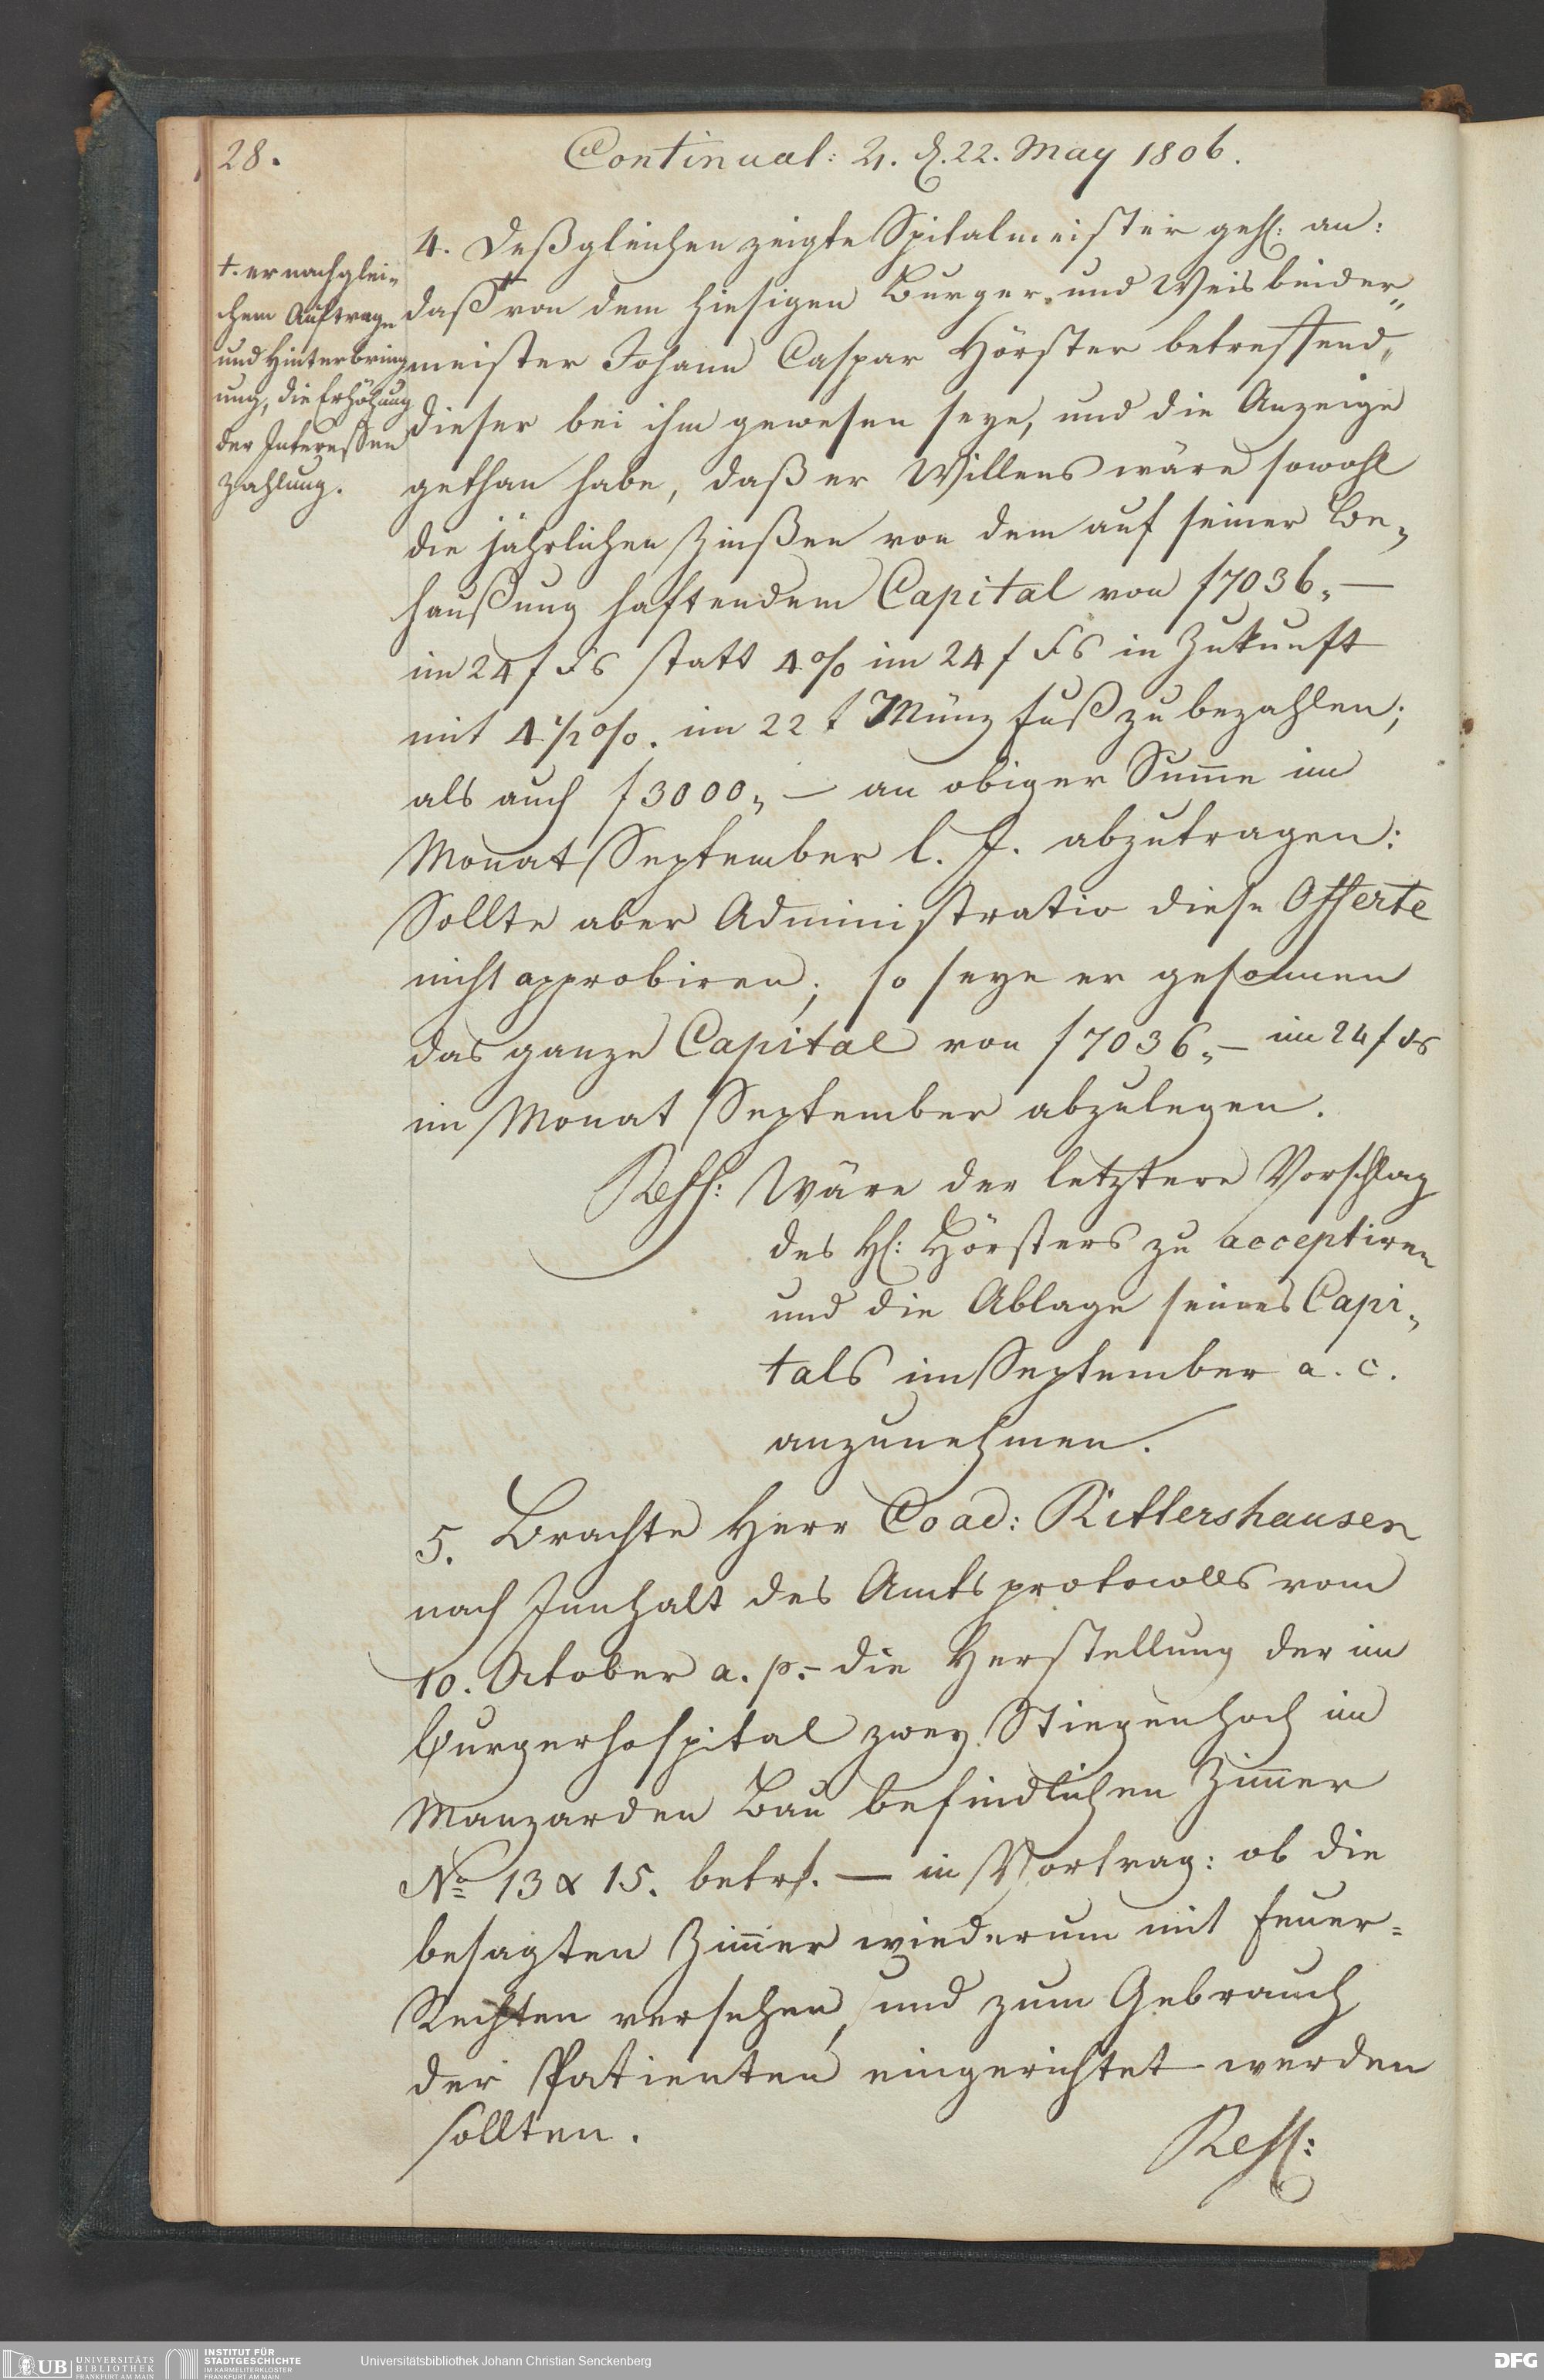 28.
Continuat: 4. d. 22. May 1806.
4. Deßgleichen zeigte Spitalmeister geh: an:
daß + von dem hiesigen Burger- und Weisbinder„
meister Johann Caspar Hörster betreffend„
dieser bei ihm gewesen seye, und die Anzeige
gethan habe, daß er Willens wäre sowohl
die jährlichen Zinßen von dem auf seiner Be„
haußung haftendem Capital von f 7036„ —
im 24 f Fs statt 4 % im 24 f Fs in Zukunft
mit 4 1/2 %. im 22 f Münz fuß zu bezahlen;
als auch f 3000„ — an obiger Sum̄e im
Monat September l. J. abzutragen:
Sollte aber Administratio diese Offerte
nicht approbiren; so seye er gesonnen
das ganze Capital von f 7036„ — im 24 f Fs
im Monat September abzulegen.
+. er nach glei„
chem Auftrage
und Hinterbring
ung, die Erhöhung
der Interessen
Zahlung.
Ress: Wäre der letztere Vorschlag
des H: Hörsters zu acceptiren
und die Ablage seines Capi„
tals im September a. c.
anzunehmen.
5. Brachte Herr Coad: Rittershausen
nach Innhalt des Amtsprotocolls vom
10. October a. p. – die Herstellung der im
Burgerhospital zwey Stiegen hoch im
Manzarden Bau befindlichen Zim̄er
No 13 & 15. betrf. — in Vortrag: ob die
besagten Zim̄er wiederum mit Feuer=
Rechten versehen, und zum Gebrauch
der Patienten eingerichtet werden
sollten.
Ress:
UB UNIVERSITÄTS
BIBLIOTHEK
FRANKFURT AM MAIN
INSTITUT FÜR
STADTGESCHICHTE
IM KARMELITERKLOSTER
FRANKFURT AM MAIN
Universitätsbibliothek Johann Christian Senckenberg
DFG